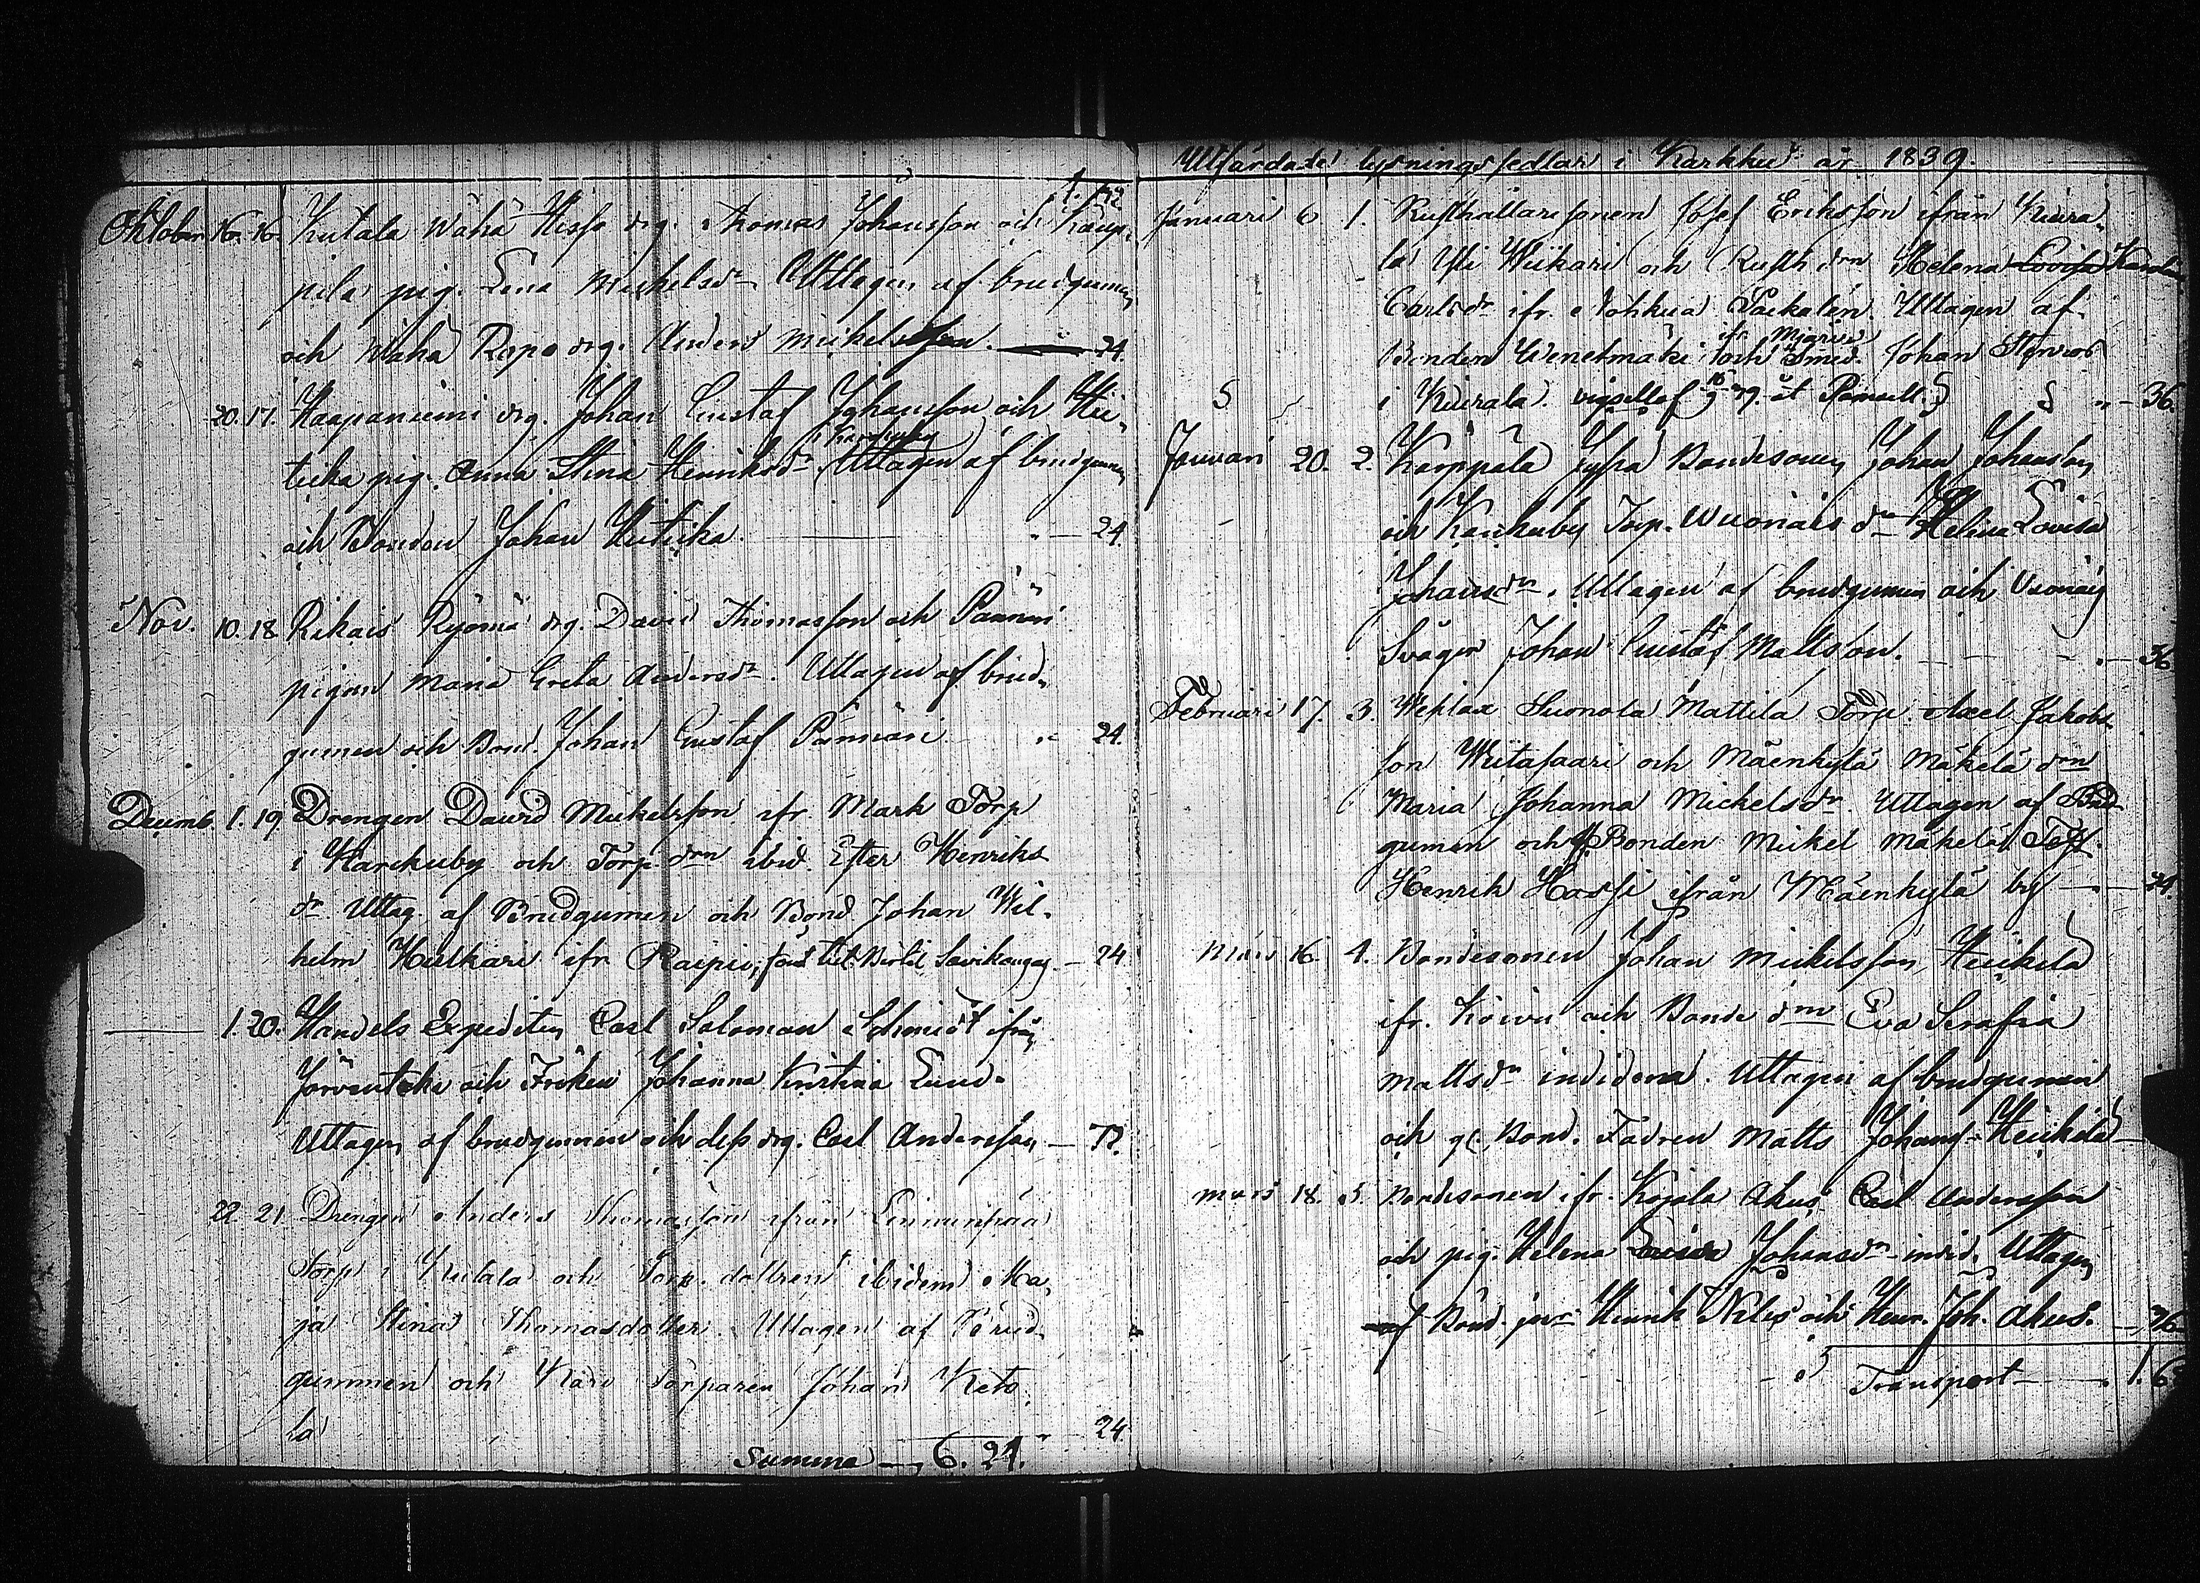 4. 72
Oktober 16. 16. Kutala Wähä Hissa drg. Thomas Johansson och Kaup-
pila pig. Lena Michelsdr. Uttagen af brudgumen
och Wähä Ripo drg. Anders Michelsson. 24.
20. 17. Haapaniemi drg. Johan Gustaf Johansson och Hei-
ticka pig. Anna Stina Henriksdr. Uttagen af brudgumen
och Bonden Johan Heiticka " — 24.
Nov. 10. 18 Rikais Ryömä drg. David Thomasson och Pännäri
pigan Maria Greta Andersdr. Uttagen af brud-
gumen och Bond. Johan Gustaf Pännäri " 24.
Decemb. 1. 19. Drengen David Mickelsson ifr. Mark Torp
i Karckuby och Torp. drn ibid. Ester Henriks
dr Uttag. af Brudgumen och Bond. Johan Wil-
helm Hulkari ifr Raipio, — 24
1. 20. Handels Expediten Carl Salomon Schmidt ifrån
Järventaka och Fröken Johanna Kristina Lund.
Uttagen af brudgumen och dess drg. Carl Andersson — 72.
22. 21. Drengen Anders Thomasson ifrån Linnunpää
Torp i Kutala och Torp. dottren ibidem Ma-
ja Stina Thomasdotter. Uttagen af Brud-
gummen och Karo Torparen Johan Keto-
la " 24.
Summa — 6. 24.
Utfärdade lysningssedlar i Karkku år 1839.
Januari 6 1. Rusthållaresonen Josef Eriksson ifrån Kiura-
la Yli Wiikari och Rusth. drn Helena Lovisa Karolina
Carlsdr. ifr. Nohkua Uttagen af
Bonden Wenetmäki ifr. och Smed. Johan
i Kiurala. " — 36.
Januari 20. 2. Karppala Jyssä Bondesonen Johan Johansson
och Karckuby Torp. Wuonais dr Helena Lovisa
Johansdr. Uttagen af brudgumen och
Svåger Johan Gustaf Mattsson. " — 36
Februari 17. 3. Wehlax Suonola Mattila Torp. Axel Jakobs-
son Wiitasaari och Mäenkylä Mäkelä drn
Maria Johanna Mickelsdr. Uttagen af Brud-
gumen och Bonden Mickel Mäkelä
Henrik Hassi ifrån Mäenkylä by — 24.
Mars 16. 4. Bondesonen Johan Mickelsson Heickilä
ifr. Koivu och Bonde drn Eva Serafia
Mattsdr. Uttagen af brudgumen
och Bond. Fadren Matts Johans- Heickilä —
Mars 18. 5. Bondesonen ifr. Kojola Akus Carl Andersson
och pig. Helena Johansdr. Uttagen
af Bond. Henrik och Henr. Joh. Akus. — 36
Transport — 1. 6